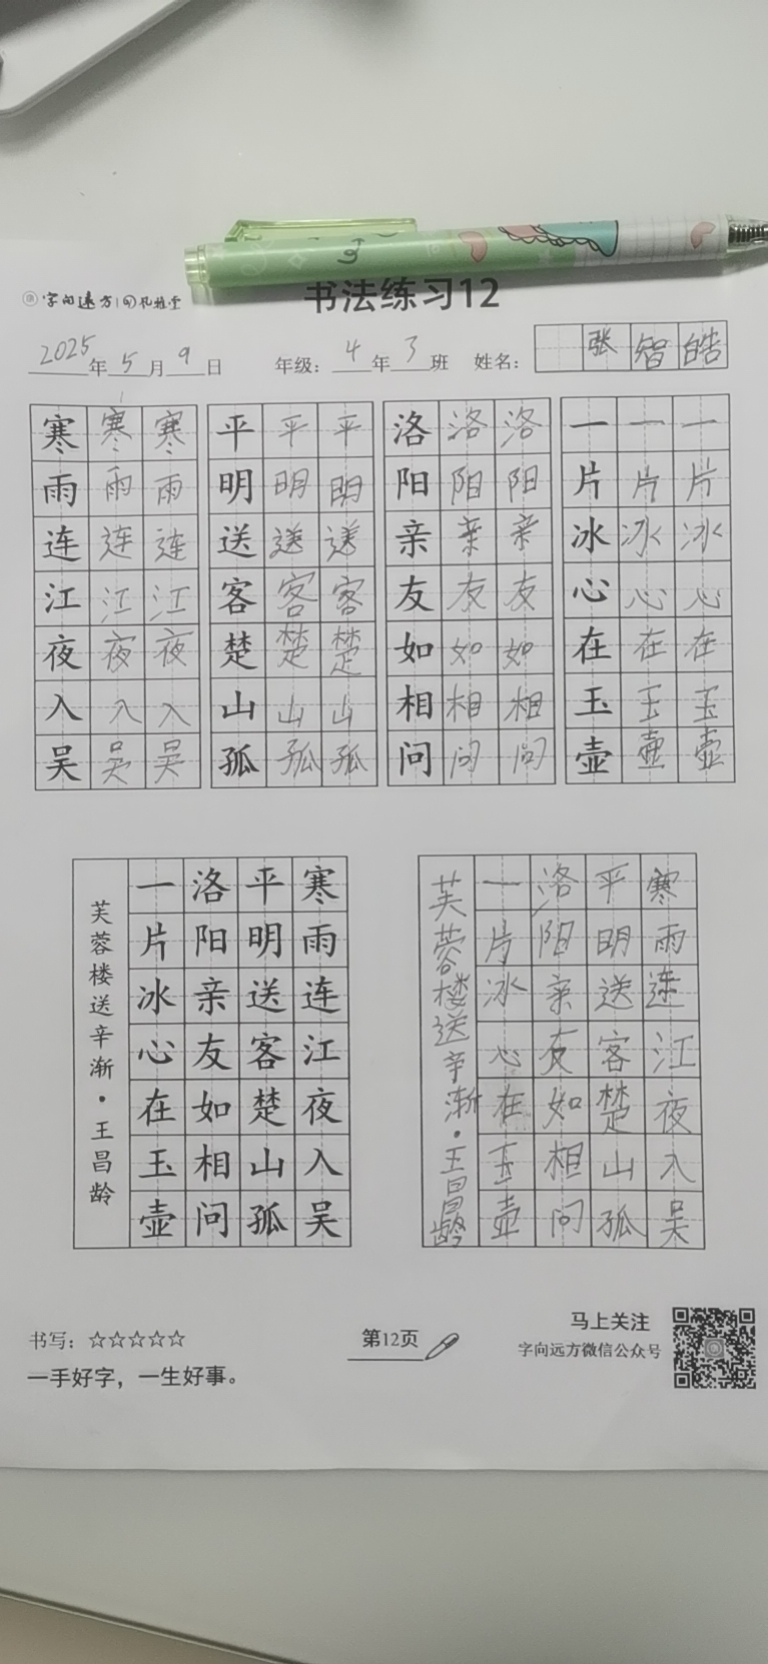 字向远方
书法练习12
2025年5月9日 年级：4年3班 姓名：张智皓
寒寒寒 平平平 洛洛洛 一一一
雨雨雨 明明明 阳阳阳 片片片
连连连 送送送 亲亲亲 冰冰冰
江江江 客客客 友友友 心心心
夜夜夜 楚楚楚 如如如 在在在
入入入 山山山 相相相 玉玉玉
吴吴吴 孤孤孤 问问问 壶壶壶
寒雨连江夜入吴
平明送客楚山孤
洛阳亲友如相问
一片冰心在玉壶
芙蓉楼送辛渐·王昌龄
寒雨连江夜入吴
平明送客楚山孤
洛阳亲友如相问
一片冰心在玉壶
芙蓉楼送辛渐·王昌龄
书写：☆☆☆☆☆
一手好字，一生好事。
第12页
马上关注
字向远方微信公众号